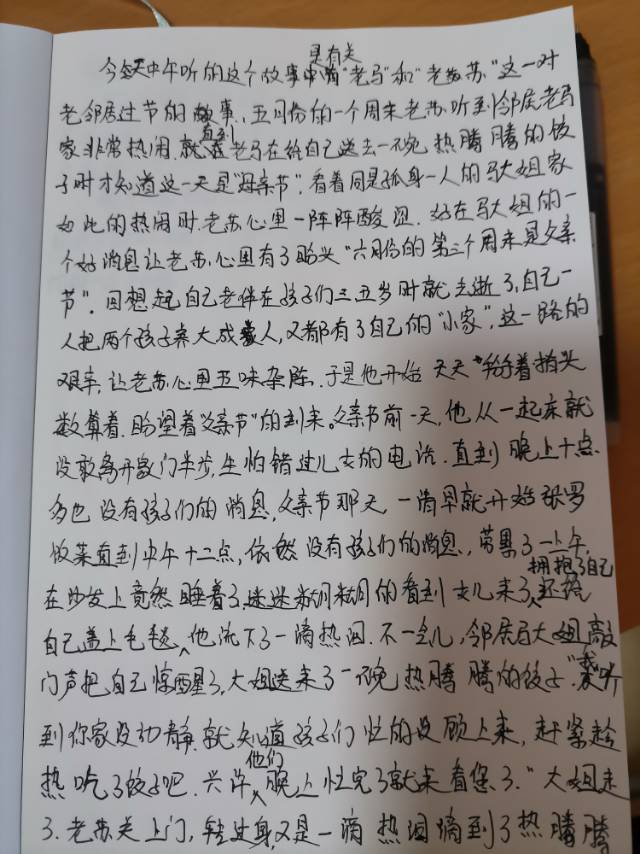 今天中午听的这个故事是有关"老马"和"老苏"这一对
老邻居过节的故事,五月份的一个周末老苏听到邻居老马
家非常热闹.直到老马在给自己送去一碗热腾腾的饺
子时才知道这一天是"母亲节".看着同是孤身一人的马大姐家
如此的热闹时.老苏心里一阵阵酸涩.好在马大姐的一
个好消息让老苏心里有了盼头"六月份的第三个周末是父亲
节".回想起自己老伴在孩子们三五岁时就去逝了,自己一
人把两个孩子养大成人,又都有了自己的"小家",这一路的
艰辛,让老苏心里五味杂陈.于是他开始天天掰着指头
数算着.盼望着"父亲节"的到来。父亲节前一天,他从一起床就
没敢离开家门半步,生怕错过儿女的电话.直到晚上十点
多也没有孩子们的消息,父亲节那天一清早就开始张罗
做菜直到中午十二点,依然没有孩子们的消息,劳累了一上午,
在沙发上竟然睡着了,迷迷糊糊的看到女儿来了,拥抱了自己还给
自己盖上毛毯,他流下了一滴热泪.不一会儿,邻居马大姐敲
门声把自己惊醒了,大姐送来了一碗热腾腾的饺子"我听
到你家没动静.就知道孩子们忙的没顾上来,赶紧趁
热吃了饺子吧.兴许他们晚上忙完了就来看您了."大姐走
了.老苏关上门,转过身,又是一滴热泪滴到了热腾腾